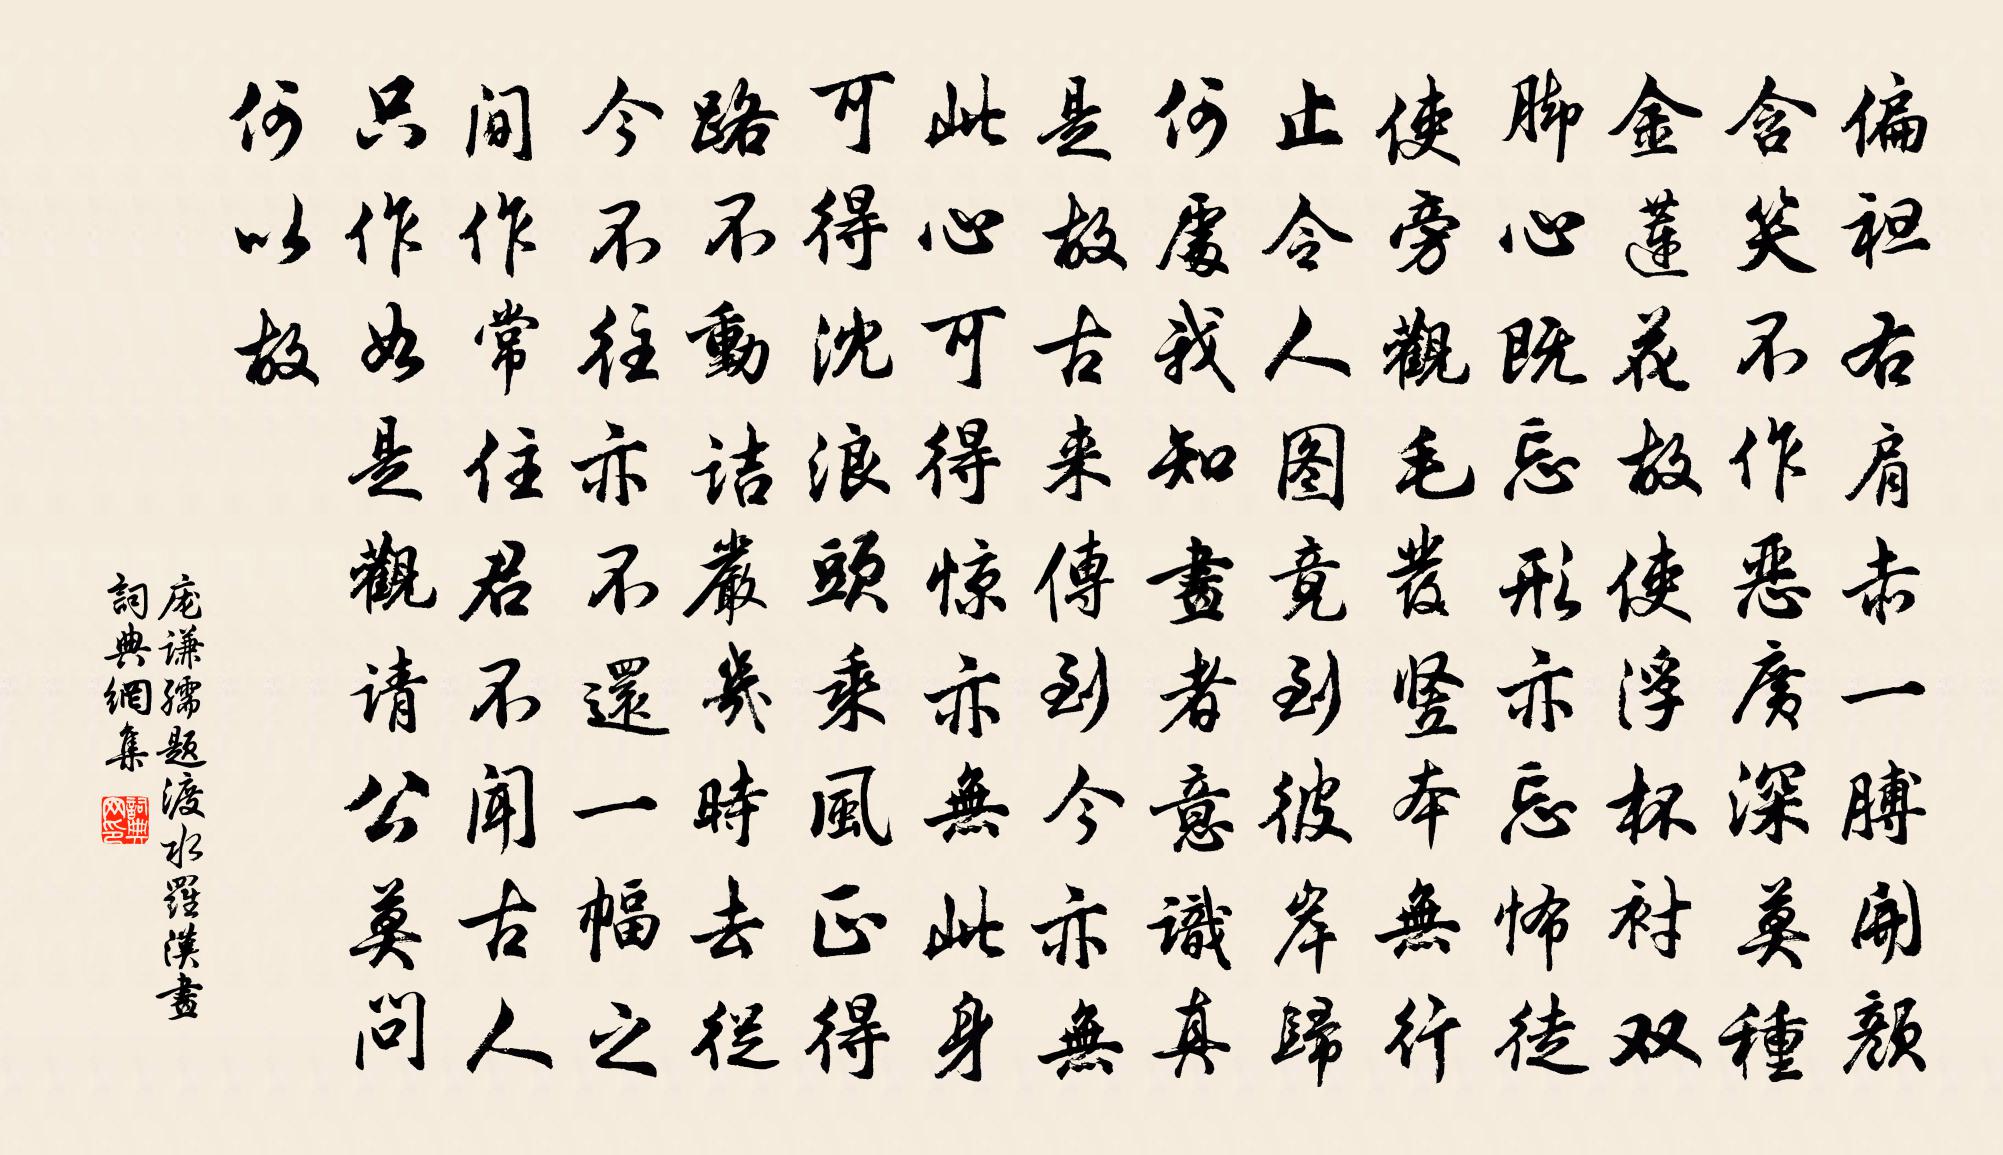 偏袒右肩赤一膊開顔
含笑不作惡廣深莫種
金蓮花故使浮杯襯双
脚心既忘形亦忘怖徒
使旁觀毛發竖本無行
止令人图竟到彼岸歸
何處我知畫者意識真
是故古来傳到今亦無
此心可得惊亦無此身
可得沈浪頭乘風正得
路不動詰嚴幾時去從
今不往亦不還一幅之
間作常住君不聞古人
只作如是觀请公莫問
何以故
庞谦孺题渡水羅漢畫
詞典網集
詞典网印